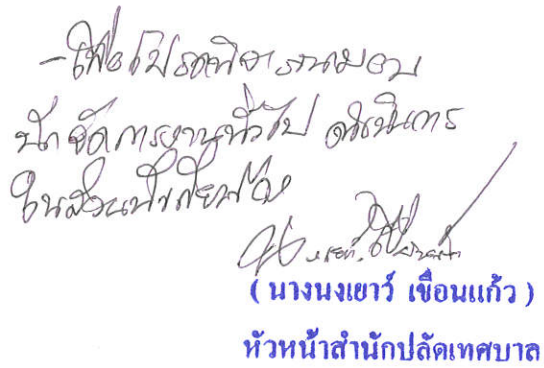 - เพื่อโปรดพิจารณามอบ
นักจัดการงานทั่วไป ดำเนินการ
ในส่วนที่เกี่ยวข้อง
( นางนงเยาว์ เขื่อนแก้ว )
หัวหน้าสำนักปลัดเทศบาล